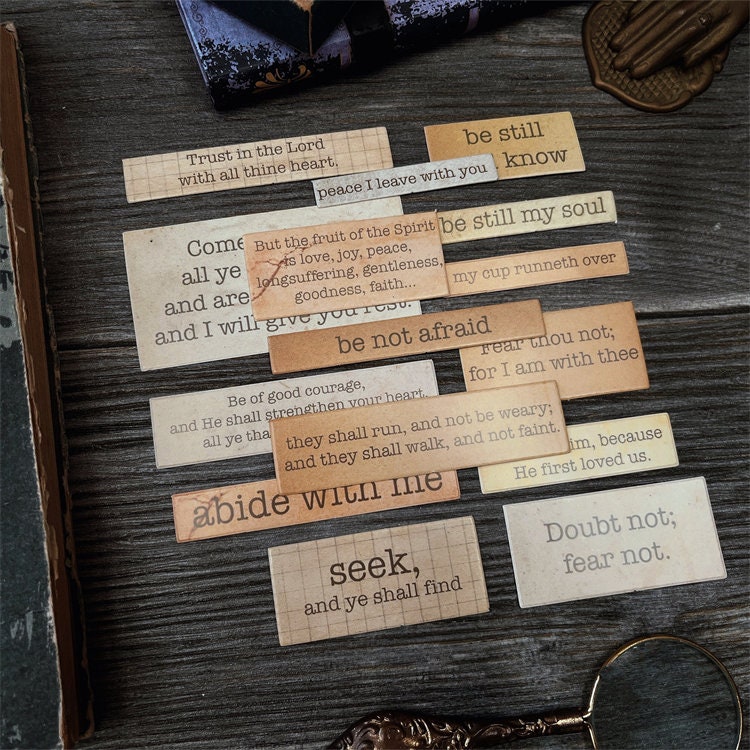 Trust in the Lord
with all thine heart.
be still
know
peace I leave with you
be still my soul
Come
all ye
and are
and I will give you rest.
But the fruit of the Spirit
is love, joy, peace,
longsuffering, gentleness,
goodness, faith...
my cup runneth over
be not afraid
Fear thou not;
for I am with thee
Be of good courage,
and He shall strengthen your heart,
all ye tha
they shall run, and not be weary;
and they shall walk, and not faint.
m, because
He first loved us.
abide with me
Doubt not;
fear not.
seek,
and ye shall find